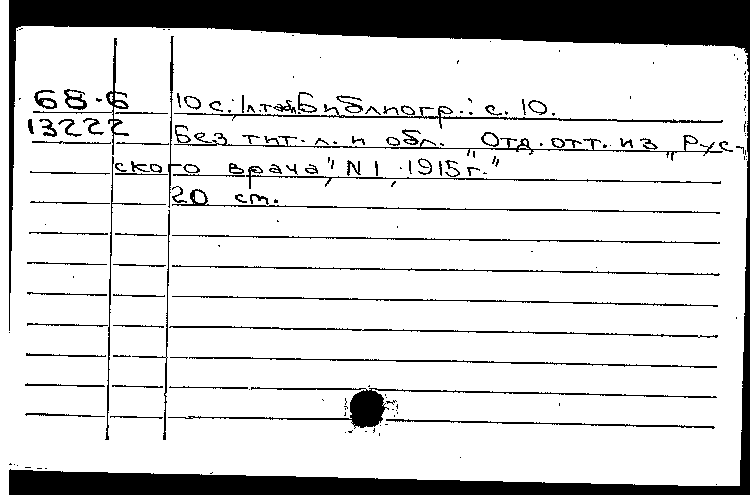 68-6 10 с., 1 л. табл. Библиогр.: с. 10.
13222 Без тит. л. и обл. „Отд. отт. из „Рус-
ского врача", N 1, 1915 г."
20 см.